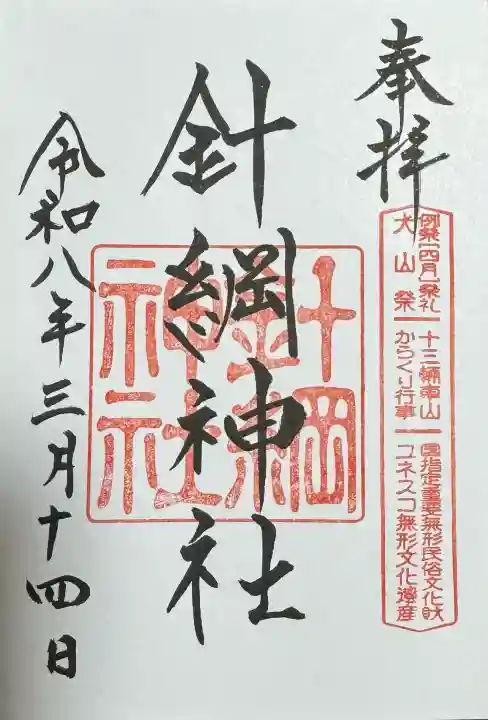 奉拝
例祭(四月)祭礼
犬山祭
十三輌車山
からくり行事
国指定重要無形民俗文化財
ユネスコ無形文化遺産
針綱神社
針綱神社
令和八年三月十四日